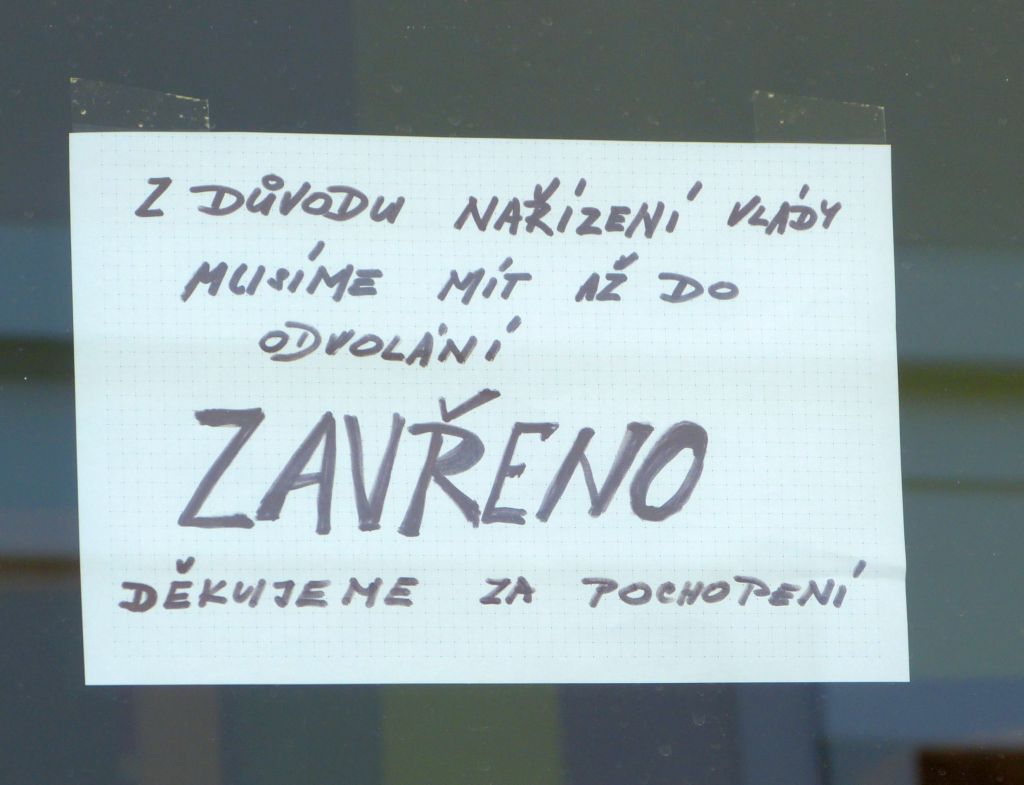 Z DŮVODU NAŘÍZENÍ VLÁDY
MUSÍME MÍT AŽ DO
ODVOLÁNÍ
ZAVŘENO
DĚKUJEME ZA POCHOPENÍ